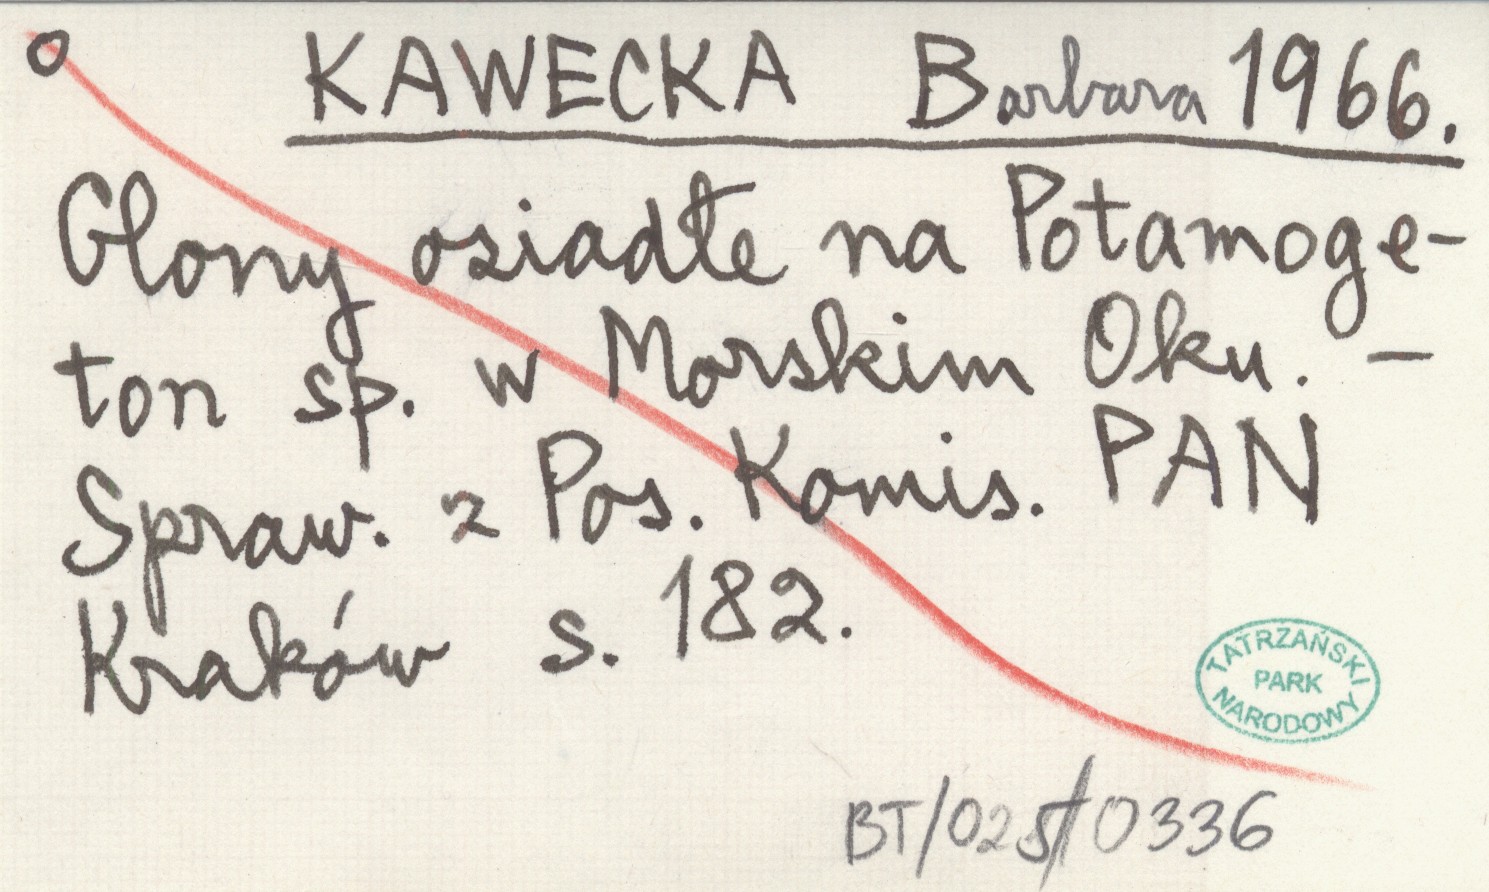 O KAWECKA Barbara 1966.
Glony osiadłe na Potamoge-
ton sp. w Morskim Oku. —
Spraw. z Pos. Komis. PAN
Kraków s. 182.
TATRZAŃSKI
PARK
NARODOWY
BT/025/0336